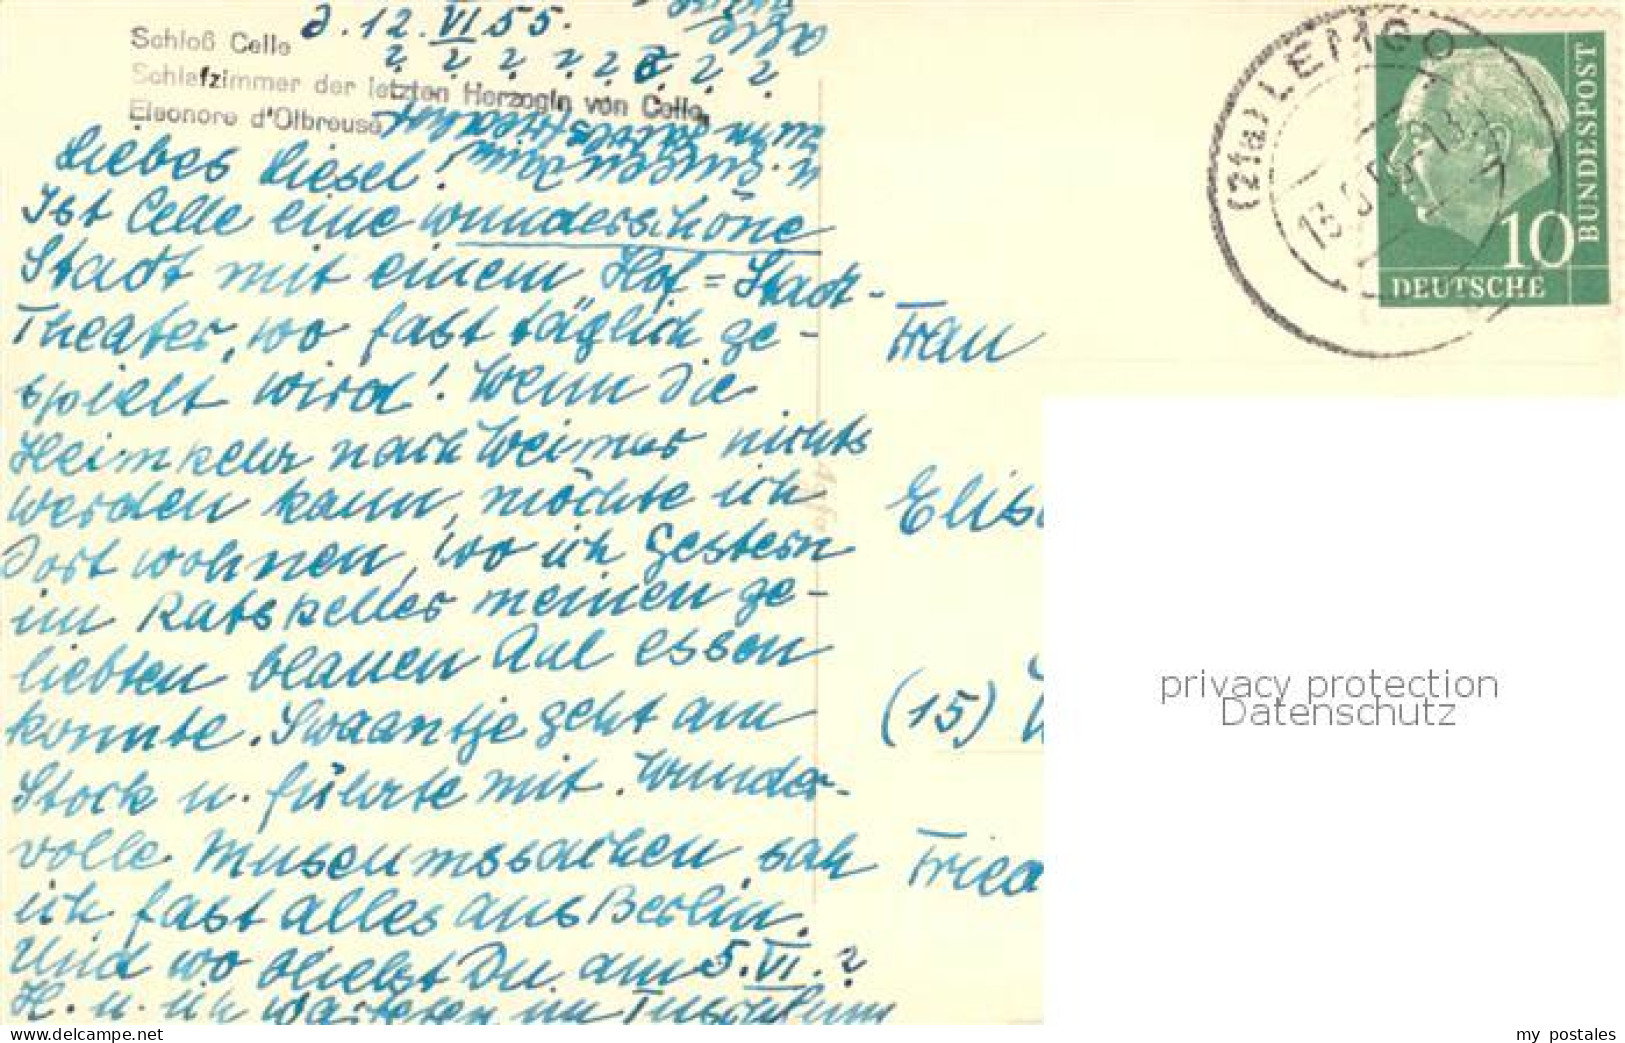 d. 12. VI 55.
? ? ? ? ? ? ? ?
Schloß Celle
Schlafzimmer der letzten Herzogin von Celle,
Eleonore d'Olbreuse
Liebes Liesel!
Ist Celle eine wunderschöne
Stadt mit einem Hof = Stadt-
Theater, wo fast täglich ge-
spielt wird! Wenn die
Heimkehr nach Weimar nichts
werden kann, möchte ich
dort wohnen, wo ich gestern
im Ratskeller meinen ge-
liebten blauen Aal essen
konnte. Swaantje geht am
Stock u. führte mit. Wunder-
volle Museumssachen sah
ich, fast alles aus Berlin.
Und wo bliebst Du am 5. VI. ?
H. u. ich warteten im
Frau
Elis
(15)
Fried
(21a) LEMGO
BUNDESPOST
10
DEUTSCHE
privacy protection
Datenschutz
www.delcampe.net
my_postales